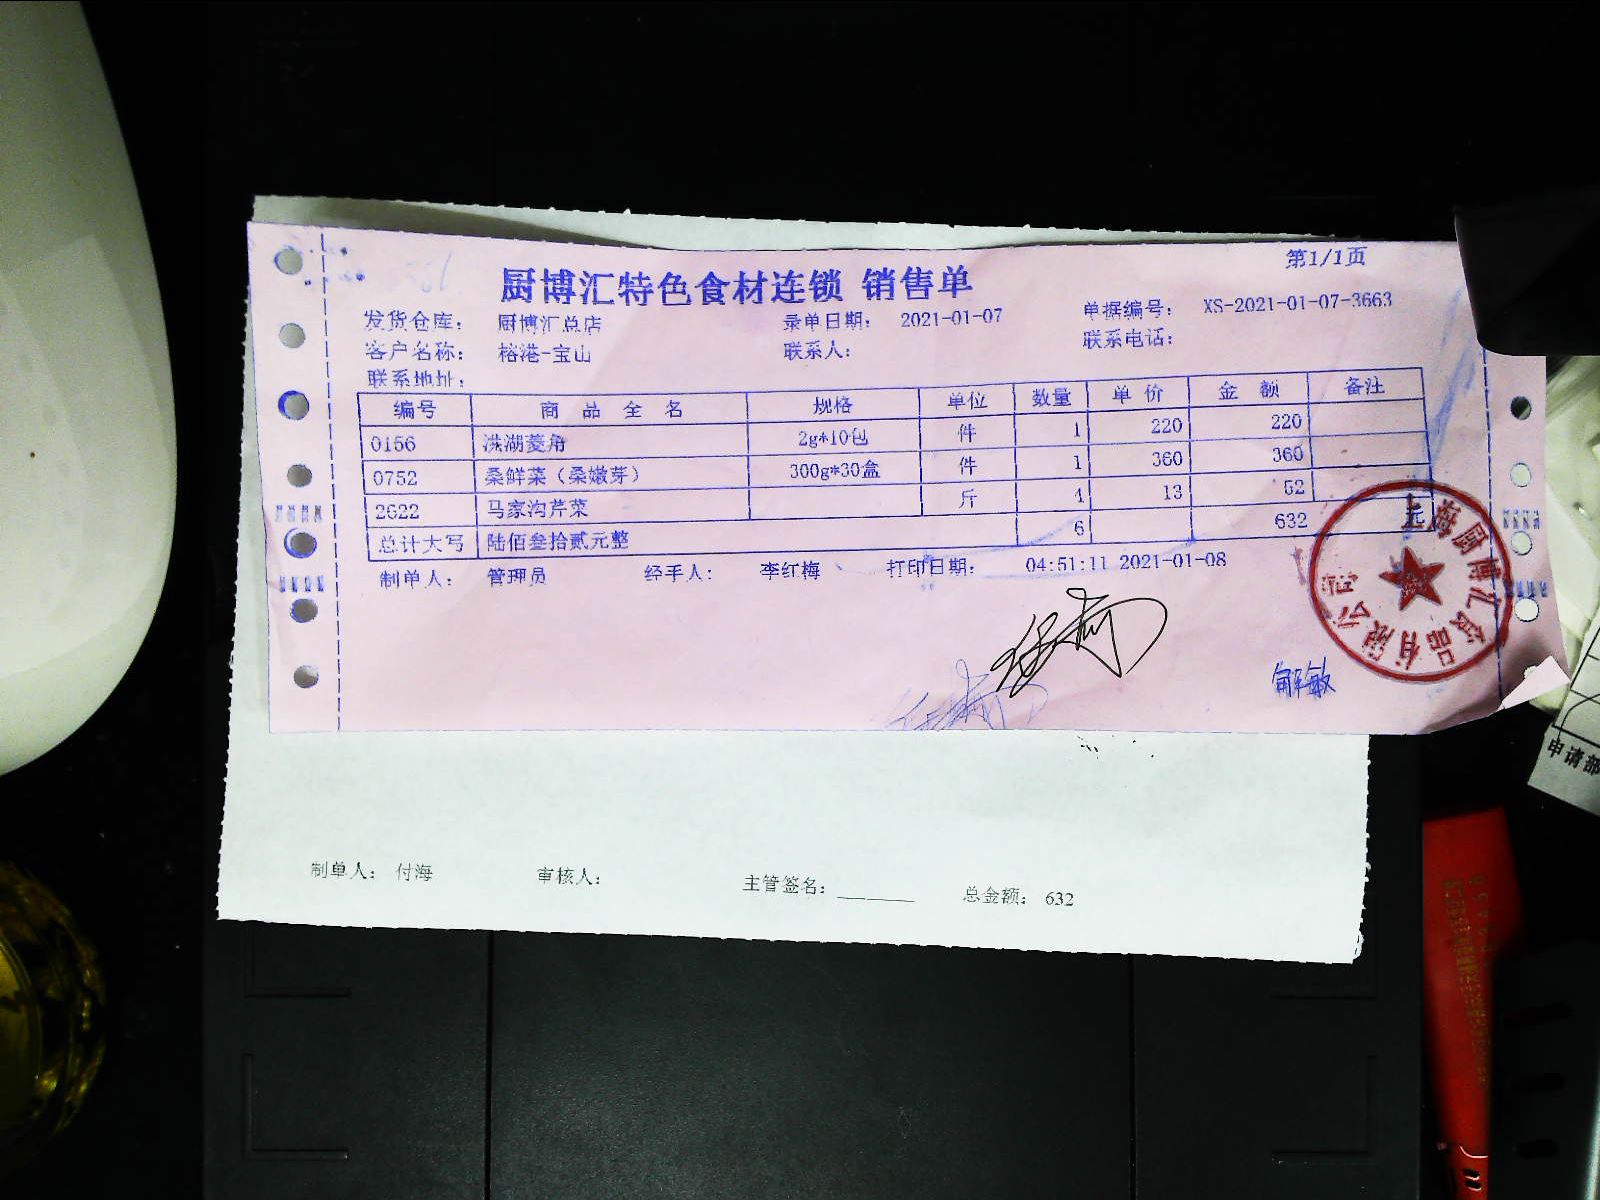 第1/1页
厨博汇特色食材连锁 销售单
发货仓库: 厨博汇总店 录单日期: 2021-01-07 单据编号: XS-2021-01-07-3663
客户名称: 榕港-宝山 联系人: 联系电话:
联系地址:
编号 商品全名 规格 单位 数量 单价 金额 备注
0156 洪湖菱角 2g*10包 件 1 220 220
0752 桑鲜菜（桑嫩芽） 300g*30盒 件 1 360 360
2622 马家沟芹菜 斤 4 13 52
总计大写 陆佰叁拾贰元整 6 632 元
制单人: 管理员 经手人: 李红梅 打印日期: 04:51:11 2021-01-08
厨博汇食品有限公司
解敏
制单人: 付海 审核人: 主管签名: 总金额: 632
申请部